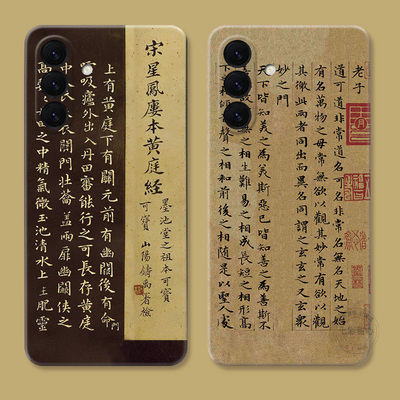 宋星鳳廔本黃庭經
墨池堂之祖本可寶
可寶 山陽
上有黃庭下有關元前有幽闕後有命門
吸廬外出入丹田審能行之可長存黃庭
中人衣朱衣關門壯蘥蓋兩扉幽闕俠之
丹田之中精氣微玉池清水上生肥靈
老子
道可道非常道名可名非常名無名天地之始
有名萬物之母常無欲以觀其妙常有欲以觀
其徼此兩者同出而異名同謂之玄玄之又玄衆
妙之門
天下皆知美之為美斯惡已皆知善之為善斯不
無之相生難易之相成長短之相形高
下之相傾聲之相和前後之相隨是以聖人處